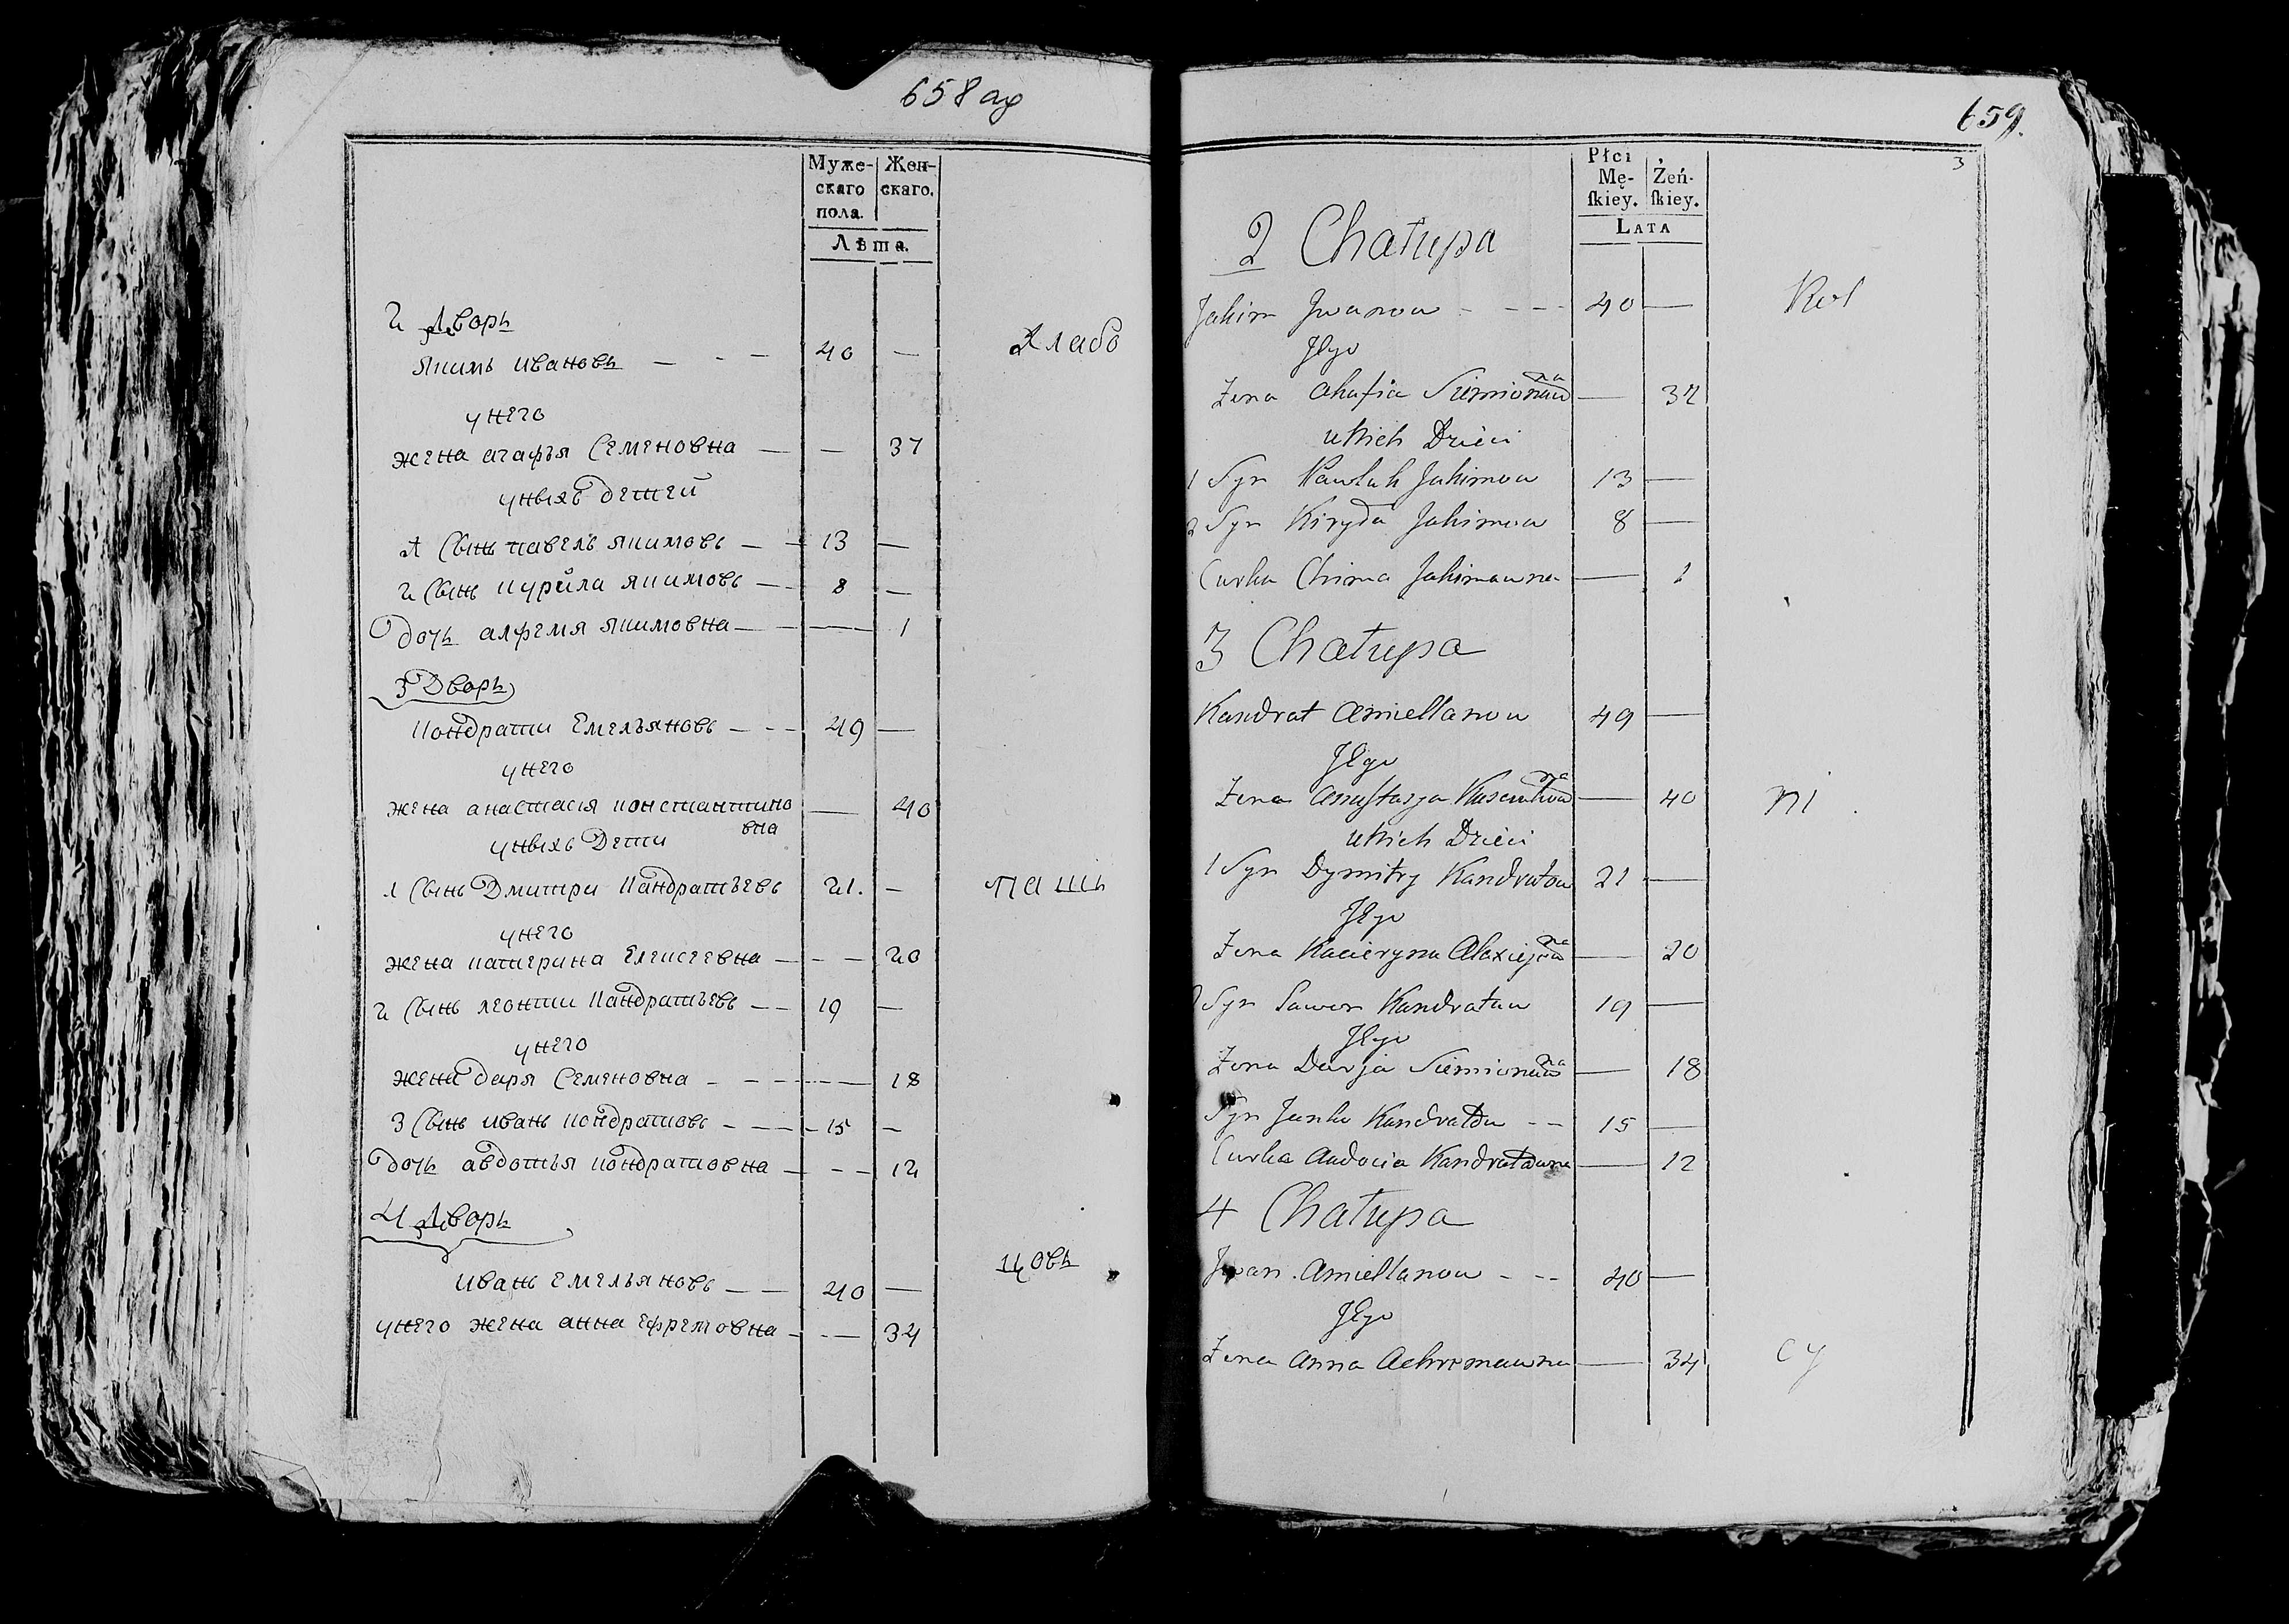 658 об
Муже-
скаго
пола.
Жен-
скаго.
Лѣта.
2 Дворъ
Якимъ Ивановъ — - — 40 —
Хлебо
унего
жена агафъя Семеновна — — 37
уныхъ детей
1 Сынъ павелъ якимовъ — — 13 —
2 Сынъ курила якимовъ — 8 —
дочь алфемя якимовна — — 1
3 Дворъ
Кондрати Емелъяновъ — - - 49 —
унего
жена анастасія константино
вна — 40
уныхъ Дети
1 Сынъ Дмитри Кандратъевъ 21. —
паш
унего
жена катерина Елисеевна — - — 20
2 Сынъ леонти Кандратъевъ — — 19 —
унего
жена даря Семеновна - - - — 18
3 Сынъ иванъ кондратовъ - - - 15 —
дочь авдотья кондратовна — - — 12
4 Дворъ
иванъ емелъяновъ — — 40 —
цовъ
унего жена анна ефремовна - - — 34
659.
3
Płci
Mę-
ſkiey.
Żeń-
ſkiey.
LATA
2 Chałupa
Jakim Jwanow - - - - 40 —
Rol
Jego
Żona Ahafia Siemionaw
na — 37
u Nich Dzieci
1 Syn Pawluk Jakimow 13 —
2 Syn Kiryła Jakimow 8 —
Curka Chima Jakimawna — 1
3 Chałupa
Kandrat Amiellanow 49 —
Jego
Żona Anastazja
na — 40
ni
u Nich Dzieci
1 Syn Dymitry Kandratow 21 —
Jego
Żona Kacieryna Alaxiejew
na — 20
Syn Kandratow 19 —
Jego
Żona Darja Siemionaw
na — 18
Syn Janka Kandratow - - 15 —
Curka Audocia Kandratawna — 12
4 Chałupa
Jwan Amiellanow - - - 40 —
Jego
Żona Anna Achremawna — 34
cy